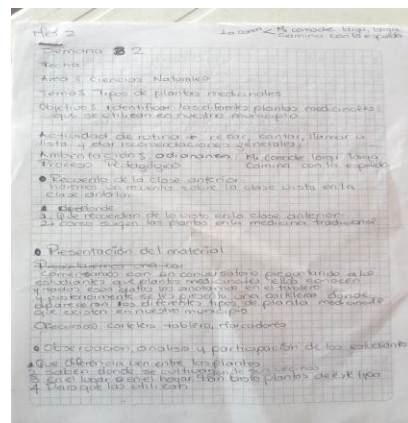 Mes 2
La canoa < Mi comadre larga, larga
camina con la espalda
Semana 2
Fecha
Area: Ciencias Naturales
Tema: Tipos de plantas medicinales
Objetivo: identificar las diferentes plantas medicinales
que se utilizan en nuestro municipio
Actividad de rutina: rezar, cantar, llamar a
lista y dar recomendaciones generales
Ambientación: adivinanza Mi comadre larga larga
Proceso Pedagógico camina con la espalda
Recuento de la clase anterior
haremos un recuento sobre la clase vista en la
clase anterior
1. Que recuerdan de lo visto en la clase anterior
2. como surgen las plantas en la medicina tradicional
Presentación del material
Comenzamos con un conversatorio preguntando a los
estudiantes que plantas medicinales ellos conocen
y todas esas plantas las anotamos en el tablero
y posteriormente se les presenta una cartelera donde
apareceran los diferentes tipos de planta medicinales
que existen en nuestro municipio
Recursos: cartelera tablero, marcadores
Observación, analisis y participación de los estudiantes
1 Que diferencia ven entre las plantas
2. Saben donde se cultivan
3 en el lugar o en el hogar han visto plantas de este tipo
4. Para que las utilizan